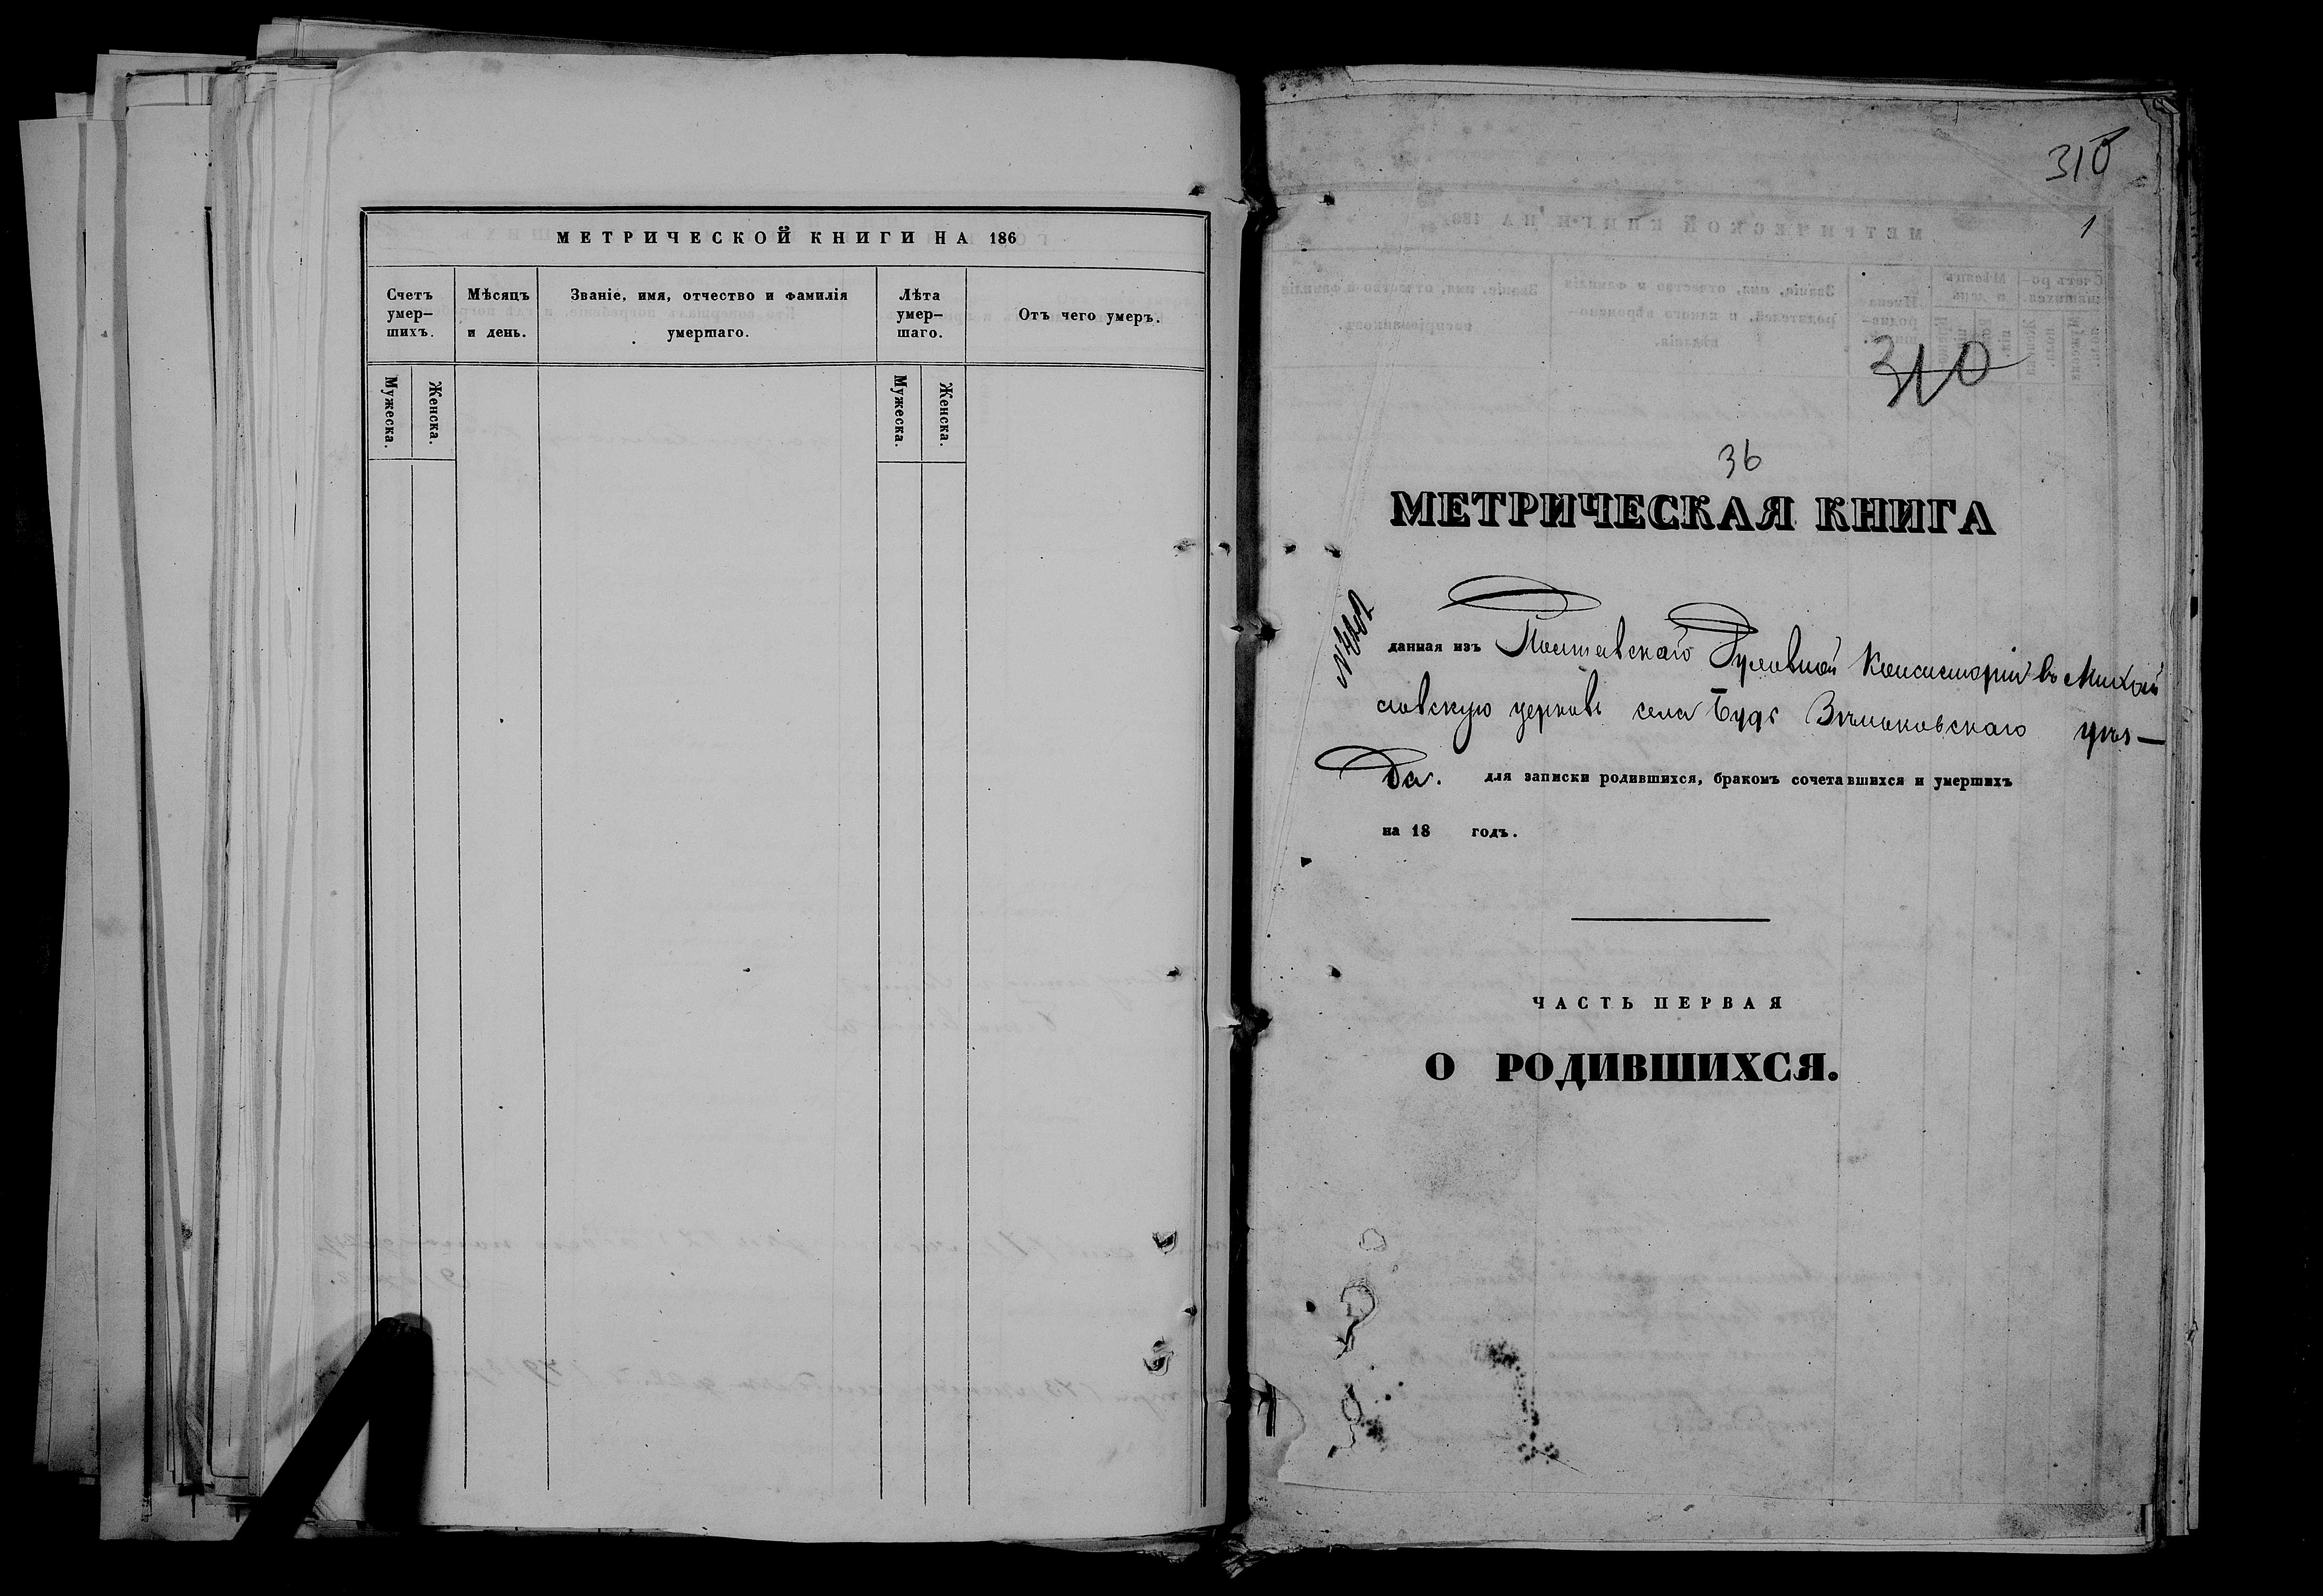 МЕТРИЧЕСКОЙ КНИГИ НА 186
Счетъ умер-шихъ.
Мѣсяцъ и день.
Званіе, имя, отчество и фамилія умершаго.
Лѣта умер-шаго.
Отъ чего умеръ.
Мужеска.
Женска.
Мужеска.
Женска.
310
1
310
36
МЕТРИЧЕСКАЯ КНИГА
данная изъ Полтавской Духовной Консисторіи въ Михай
ловскую церковь села Будъ Зѣньковскаго уѣз—
да. для записки родившихся, бракомъ сочетавшихся и умершихъ
на 18 годъ.
ЧАСТЬ ПЕРВАЯ
О РОДИВШИХСЯ.